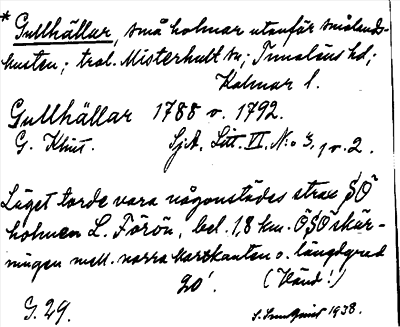 * Gullhällar, små holmar utanför smålands-
kusten; trol. Misterhult sn; Tunaläns hd;
Kalmar l.
Gullhällar 1788 o. 1792.
G. Klint. SjA. Litt. VI. N:o 3, 1 o. 2.
Läget torde vara någonstädes strax SO
holmen L. Förön, bel. 1,8 km. OSO skär-
ningen mell. norra kartkanten o. längdgrad
20'. (Vänd!)
G. 29. 1938.